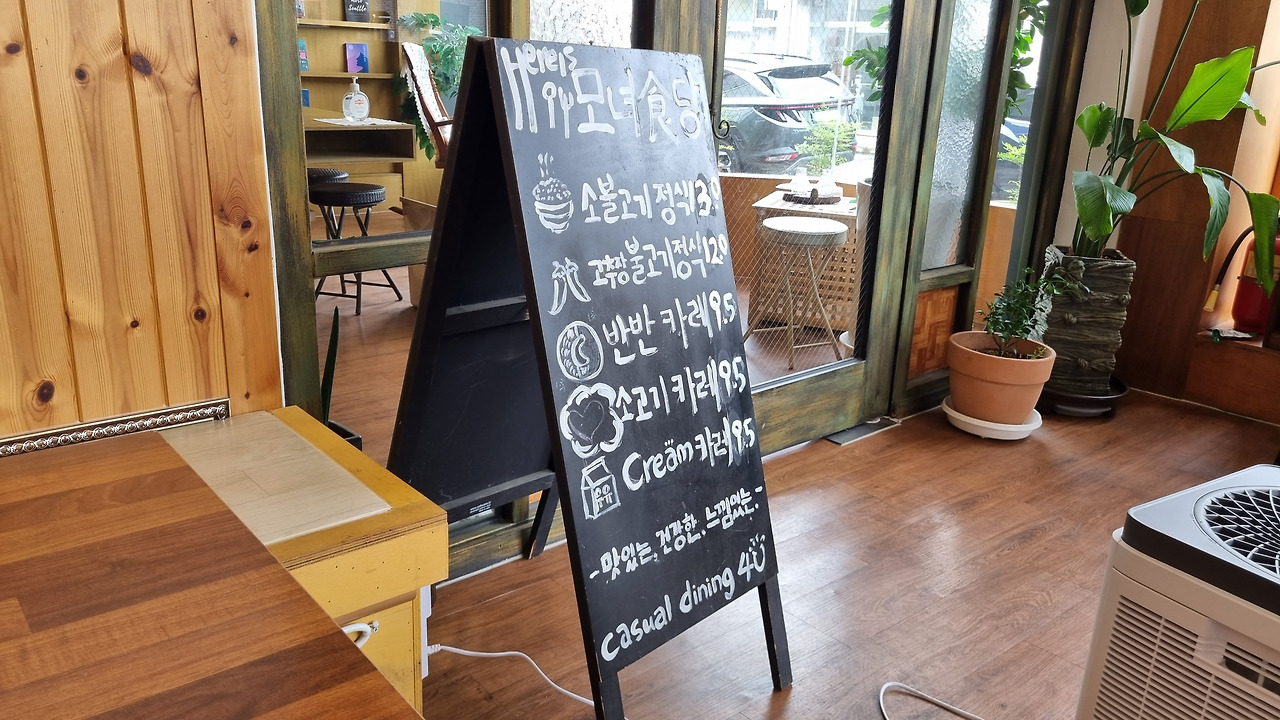 Here is
모녀食당
소불고기 정식 13.0
고추장불고기정식 12.0
반반 카레 9.5
소고기 카레 9.5
Cream 카레 9.5
우유
- 맛있는, 건강한, 느낌있는. -
casual dining 4U